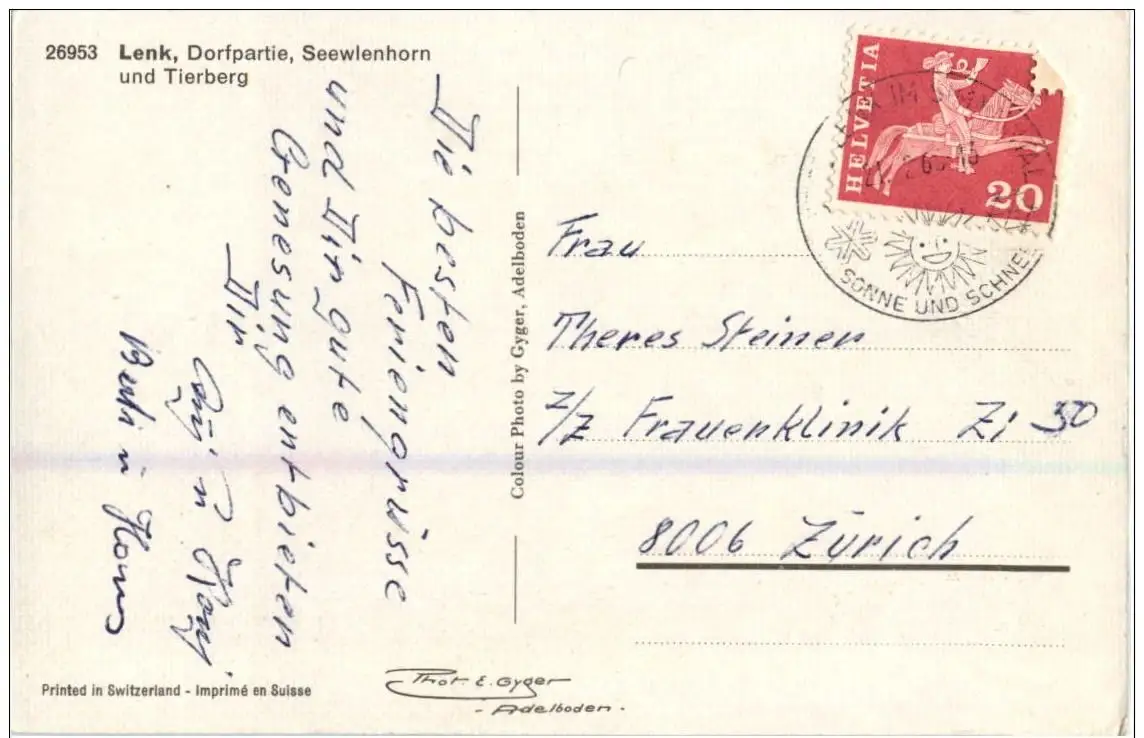 26953 Lenk, Dorfpartie, Seewlenhorn
und Tierberg
Die besten
Feriengrüsse
und Dir gute
Genesung entbieten
Dir
Berti u Hans
Colour Photo by Gyger, Adelboden
HELVETIA
20
IM
SONNE UND SCHNEE
Frau
Theres Steiner
z/Z Frauenklinik Zi 50
8006 Zürich
Printed in Switzerland - Imprimé en Suisse
Phot. E. Gyger
- Adelboden -